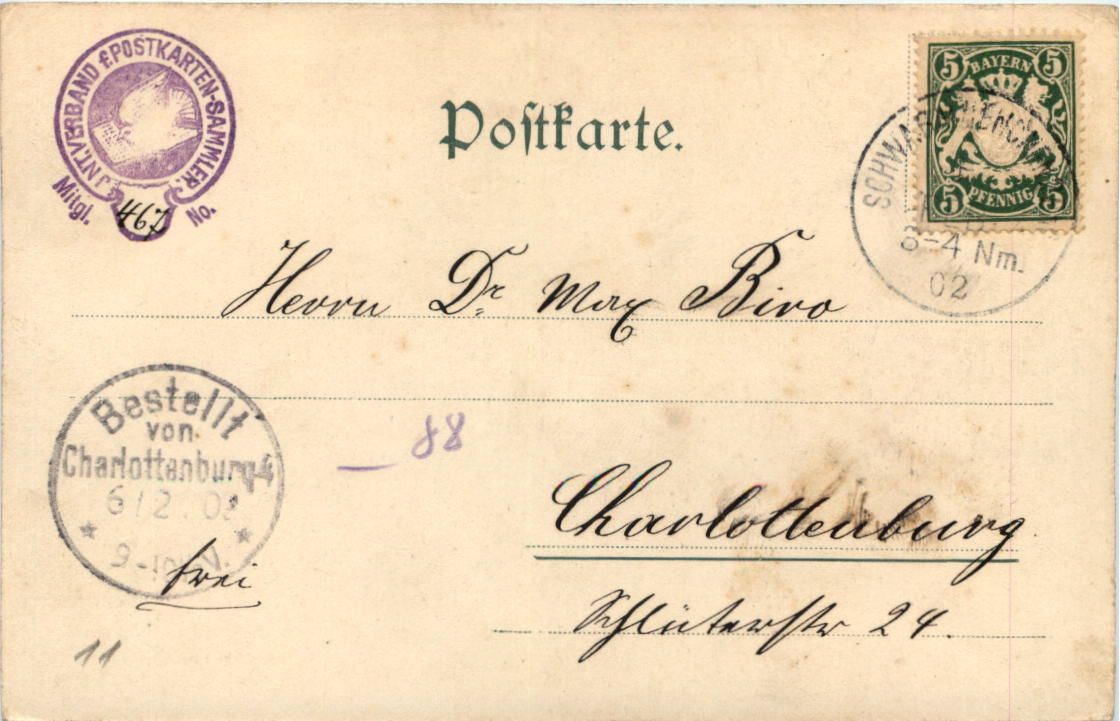 INT. VERBAND f. POSTKARTEN-SAMMLER
Mitgl. 467 No.
Postkarte.
5 BAYERN 5
5 PFENNIG 5
8-4 Nm.
02
Herrn Dr. Max Biro
Bestellt
von
Charlottenburg 4
6/2.02
9-10 V.
88
Charlottenburg
frei
Schlüterstr 24.
11